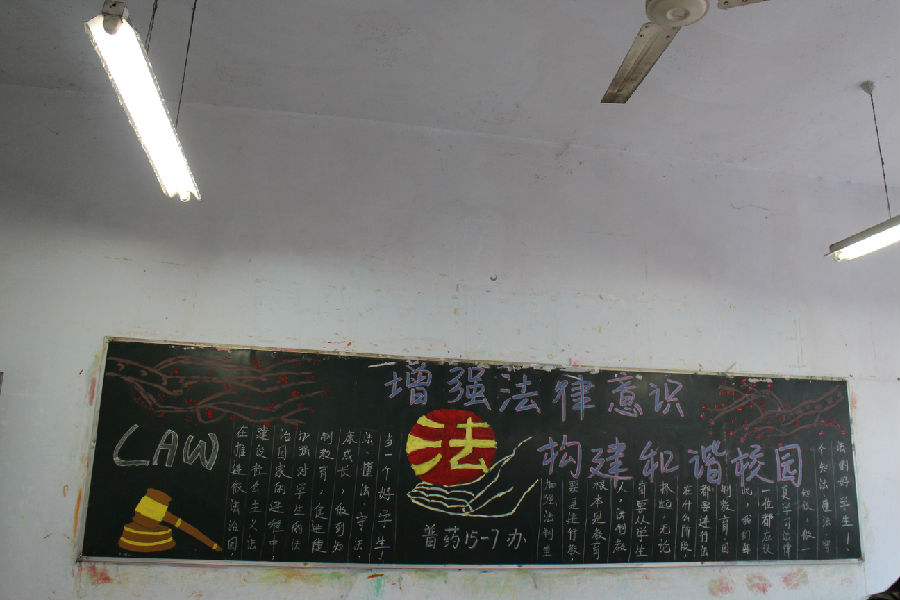 增强法律意识
构建和谐校园
LAW
在推进依法治国
建设社会主义法
治国家的进程中,
加强对学生的法
制教育,促进健
成长,做到知
法、懂法、守法
当一个好学生!
法
普药15-7办
加强法制
要进行教
根本是教育
人,法制教
育要从学生
抓起,无论
在什么阶段
都要进行法
制教育,因
此,我们
一位都应认
真学习法律
知识,做一
个知法懂法守
法的好学生!